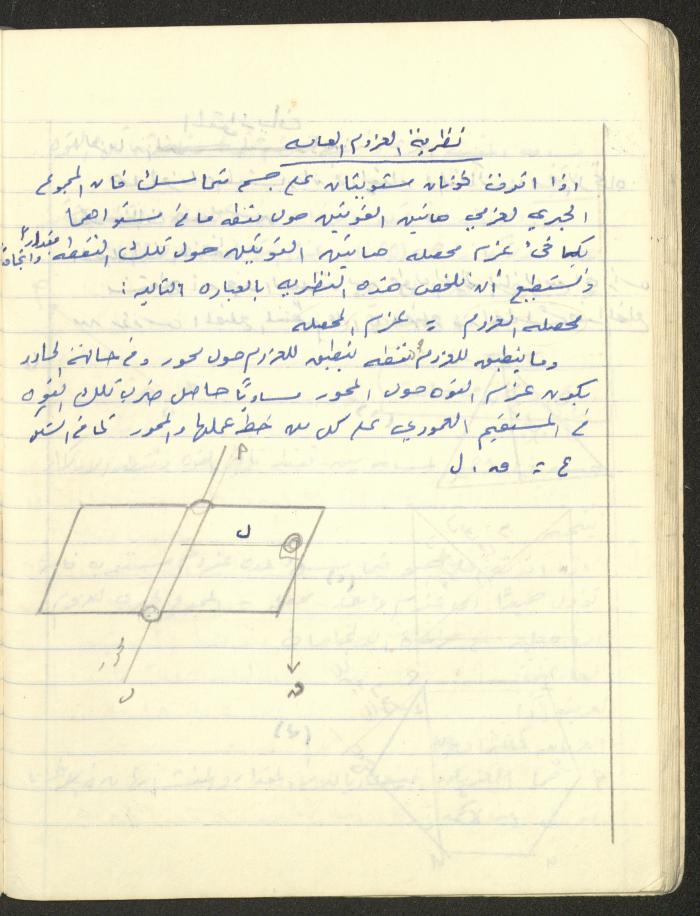 نظرية العزوم العامه
اذا اثرت قوتان مستويتان على جسم متماسك فان المجموع
الجبري لعزمي هاتين القوتين حول نقطه ما في مستواهما
يكافئ عزم محصله هاتين القوتين حول تلك النقطه مقداراً واتجاهاً
ونستطيع أن نلخص هذه النظريه بالعباره التاليه :
محصله العزوم = عزم المحصله
وما ينطبق للعزوم نقطه ينطبق للعزوم حول محور وفي حالة
يكون عزم القوه حول المحور مساوياً حاصل ضرب تلك القوه
في المستقيم العمودي على كل من خط عملها والمحور كما في الشكل
ع = ق . ل
م
ل
ق
ن